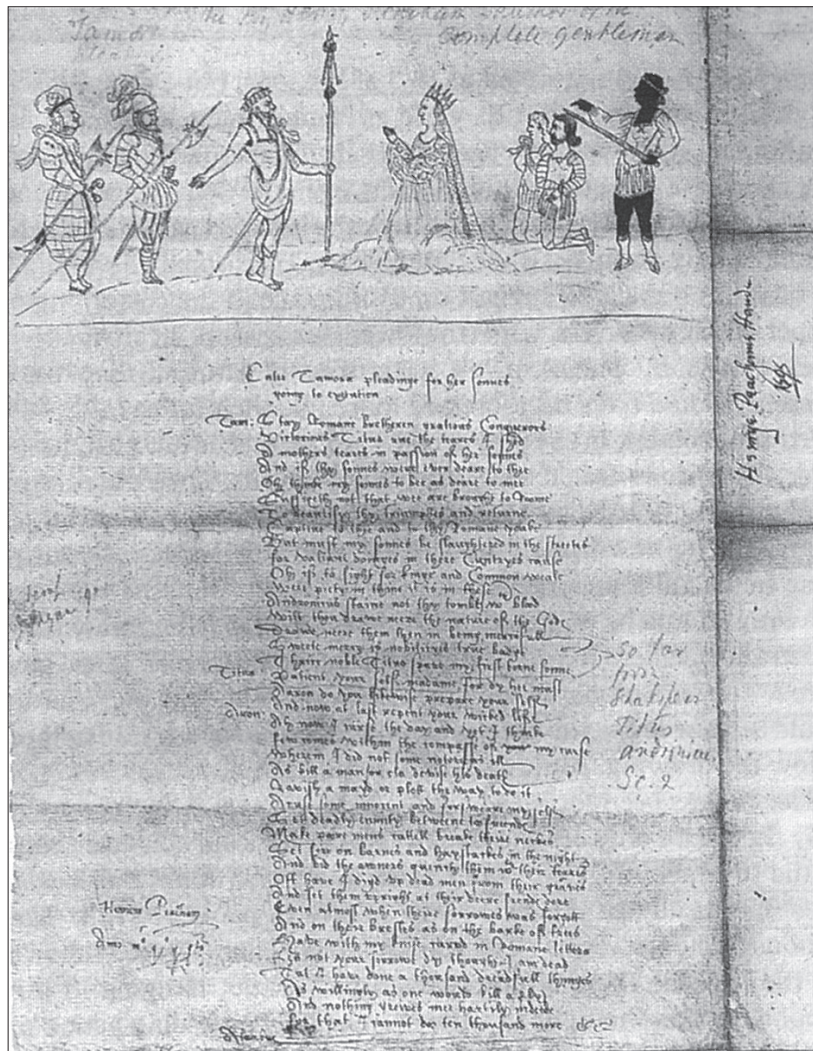 Tamora
Henry Peacham Author of the
Complete gentleman
Enter Tamora pleadinge for her sonnes
going to execution
Tam: Stay Romane bretheren gratious Conquerors
Victorious Titus rue the teares I shed
A mothers teares in passion of her sonnes
And if thy sonnes were ever deare to thee
Oh thinke my sonnes to bee as deare to mee
Suffizeth not that wee are brought to Roome
To beautify thy triumphes and returne
Captive to thee and to thy Romane yoake
But must my sonnes be slaughtered in the streetes
for valiant doinges in there Cuntryes cause
Oh if to fight for kinge and Common weale
Were piety in thine it is in these
Andronicus staine not thy tombe wth blood
Wilt thou drawe neere the nature of the Godes
Drawe neere them then in being mercifull
Sweete mercy is nobilityes true badge
Thrice noble Titus spare my first borne sonne
Titus: Patient your self madame for dy hee must
Aaron do you likewise prepare your self
And now at last repent your wicked life
Aron: Ah now I curse the day and yet I thinke
few comes within the compasse of my curse
Wherein I did not some notorious ill
As kill a man or els devise his death
Ravish a mayd or plott the way to do it
Acuse some innocent and forsweare my self
Set deadly enmity betweene to freendes
Make poore mens cattell breake theire neckes
Set fire on barnes and haystackes in the night
And bid the owners quench them wth their teares
Oft have I digd up dead men from their graves
And set them upright at their deere frendes dore
Even almost when theire sorrowes was forgott
And on their brestes as on the barke of trees
Have with my knife carved in Romane letters
Lett not your sorrowe dy though I am dead
Tut I have done a thousand dreadfull thinges
As willingly as one would kill a fly
And nothing greives mee hartily indeede
for that I cannot doo ten thousand more &c
Alarbus
so far
from
Shakspear
Titus
Andronicus
Sc. 2
Henricus Peacham
Henrye Peachams Hande
1595